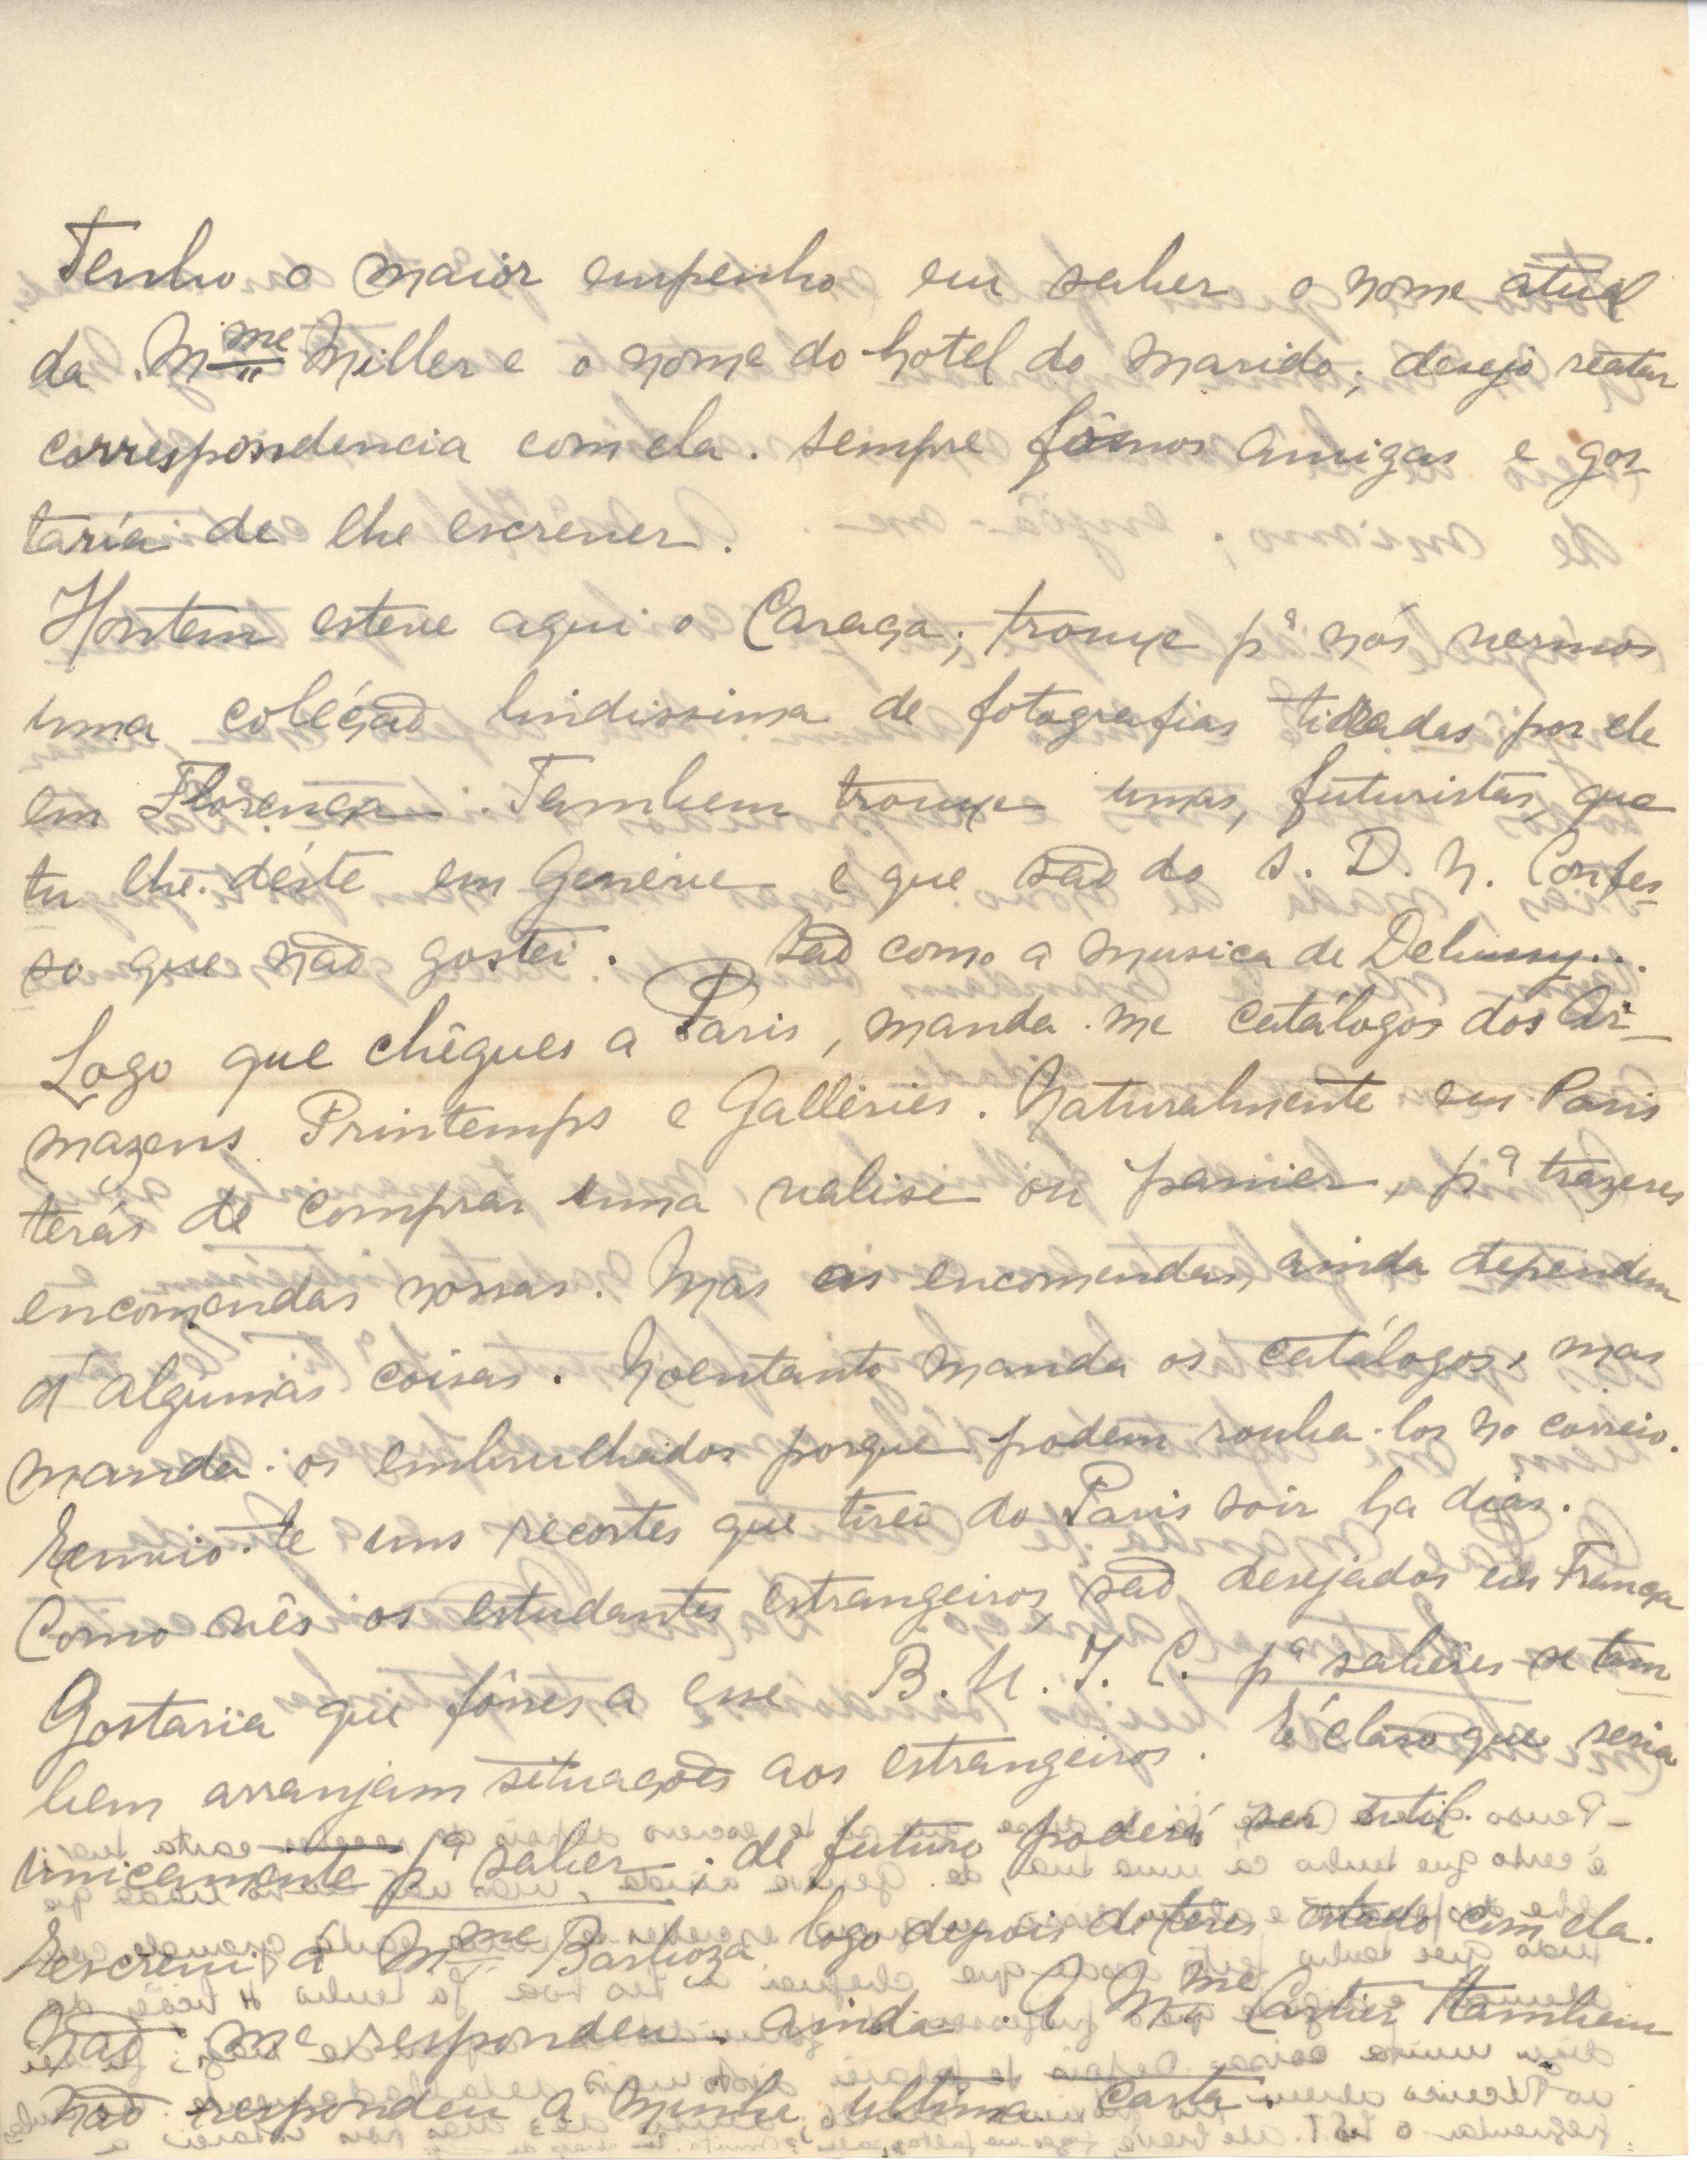 Tenho o maior empenho em saber o nome atual
da Mme Miller e o nome do hotel do marido; desejo reatar
correspondencia com ela. Sempre fômos amigas e gos-
taría de lhe escrever.
Hontem esteve aqui o Caraça; trouxe pª nós vermos
uma coléção lindissima de fotografias tiradas por ele
em Florença. Tambem trouxe umas, futuristas, que
tu lhe déste em Genève e que são da S. D. N. Confes-
so que não gostei. São como a musica de Debussy...
Logo que chêgues a Paris, manda-me catálogos dos Ar-
mazens Printemps e Galléries. Naturalmente em Paris
terás de comprar uma valise ou panier, pª trazeres
encomendas nossas. Mas as encomendas, ainda dependem
d'algumas coisas. Noentanto manda os catálogos, mas
manda-os embrulhados porque podem rouba-los no correio.
Envio-te uns recortes que tirei do Paris soir ha dias.
Como vês os estudantes estrangeiros, são desejados em França
Gostaria que fôsses a esse B. U. I. C. pª sabêres se tam
bem arranjam situações aos estrangeiros. É claro que seria
unicamente pª saber. de futuro poderá ser util.
Escrevi á Mme Barboza logo depois de teres estado com ela.
Não me respondeu ainda. A Mme Cartier tambem
não respondeu a minha ultima carta.